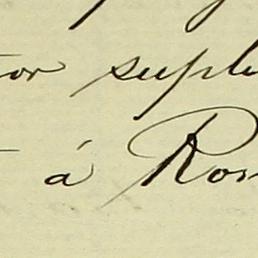 tor suplu
á Ron